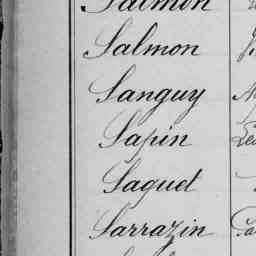 Salmon
Salmon
Sanguy
Sapin
Saquet
Sarrazin